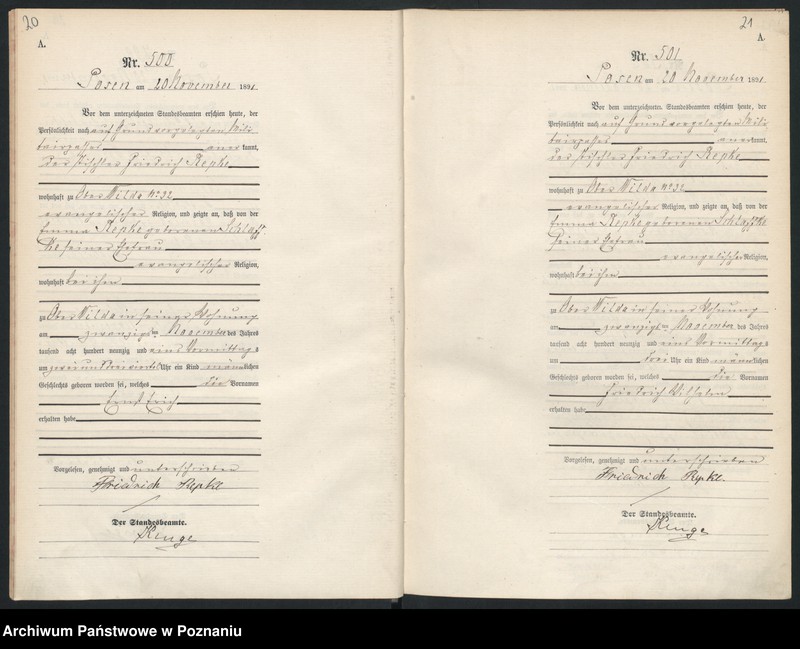 20
A.
Nr. 500
Posen am 20 November 1891
Vor dem unterzeichneten Standesbeamten erschien heute, der
Persönlichkeit nach auf Grund vorgelegten Mili-
tairpasses anerkannt,
der Tischler Friedrich Repke
wohnhaft zu Ober Wilda No 32
evangelischer Religion, und zeigte an, daß von der
Emma Repke geborenen
ke seiner Ehefrau
evangelischer Religion,
wohnhaft bei ihm
zu Ober Wilda in seiner Wohnung
am zwanzigsten November des Jahres
tausend acht hundert neunzig und eins Vormittags
um zwei und drei viertel Uhr ein Kind männlichen
Geschlechts geboren worden sei, welches die Vornamen
Ernst Erich
erhalten habe
Vorgelesen, genehmigt und unterschrieben
Friedrich Repke
Der Standesbeamte.
21
A.
Nr. 501
Posen am 20 November 1891
Vor dem unterzeichneten Standesbeamten erschien heute, der
Persönlichkeit nach auf Grund vorgelegten Mili-
tairpasses anerkannt,
der Tischler Friedrich Repke
wohnhaft zu Ober Wilda No 32
evangelischer Religion, und zeigte an, daß von der
Emma Repke geborenen
seiner Ehefrau
evangelischer Religion,
wohnhaft bei ihm
zu Ober Wilda in seiner Wohnung
am zwanzigsten November des Jahres
tausend acht hundert neunzig und eins Vormittags
um drei Uhr ein Kind männlichen
Geschlechts geboren worden sei, welches die Vornamen
Friedrich Wilhelm
erhalten habe
Vorgelesen, genehmigt und unterschrieben
Friedrich Repke.
Der Standesbeamte.
Archiwum Państwowe w Poznaniu